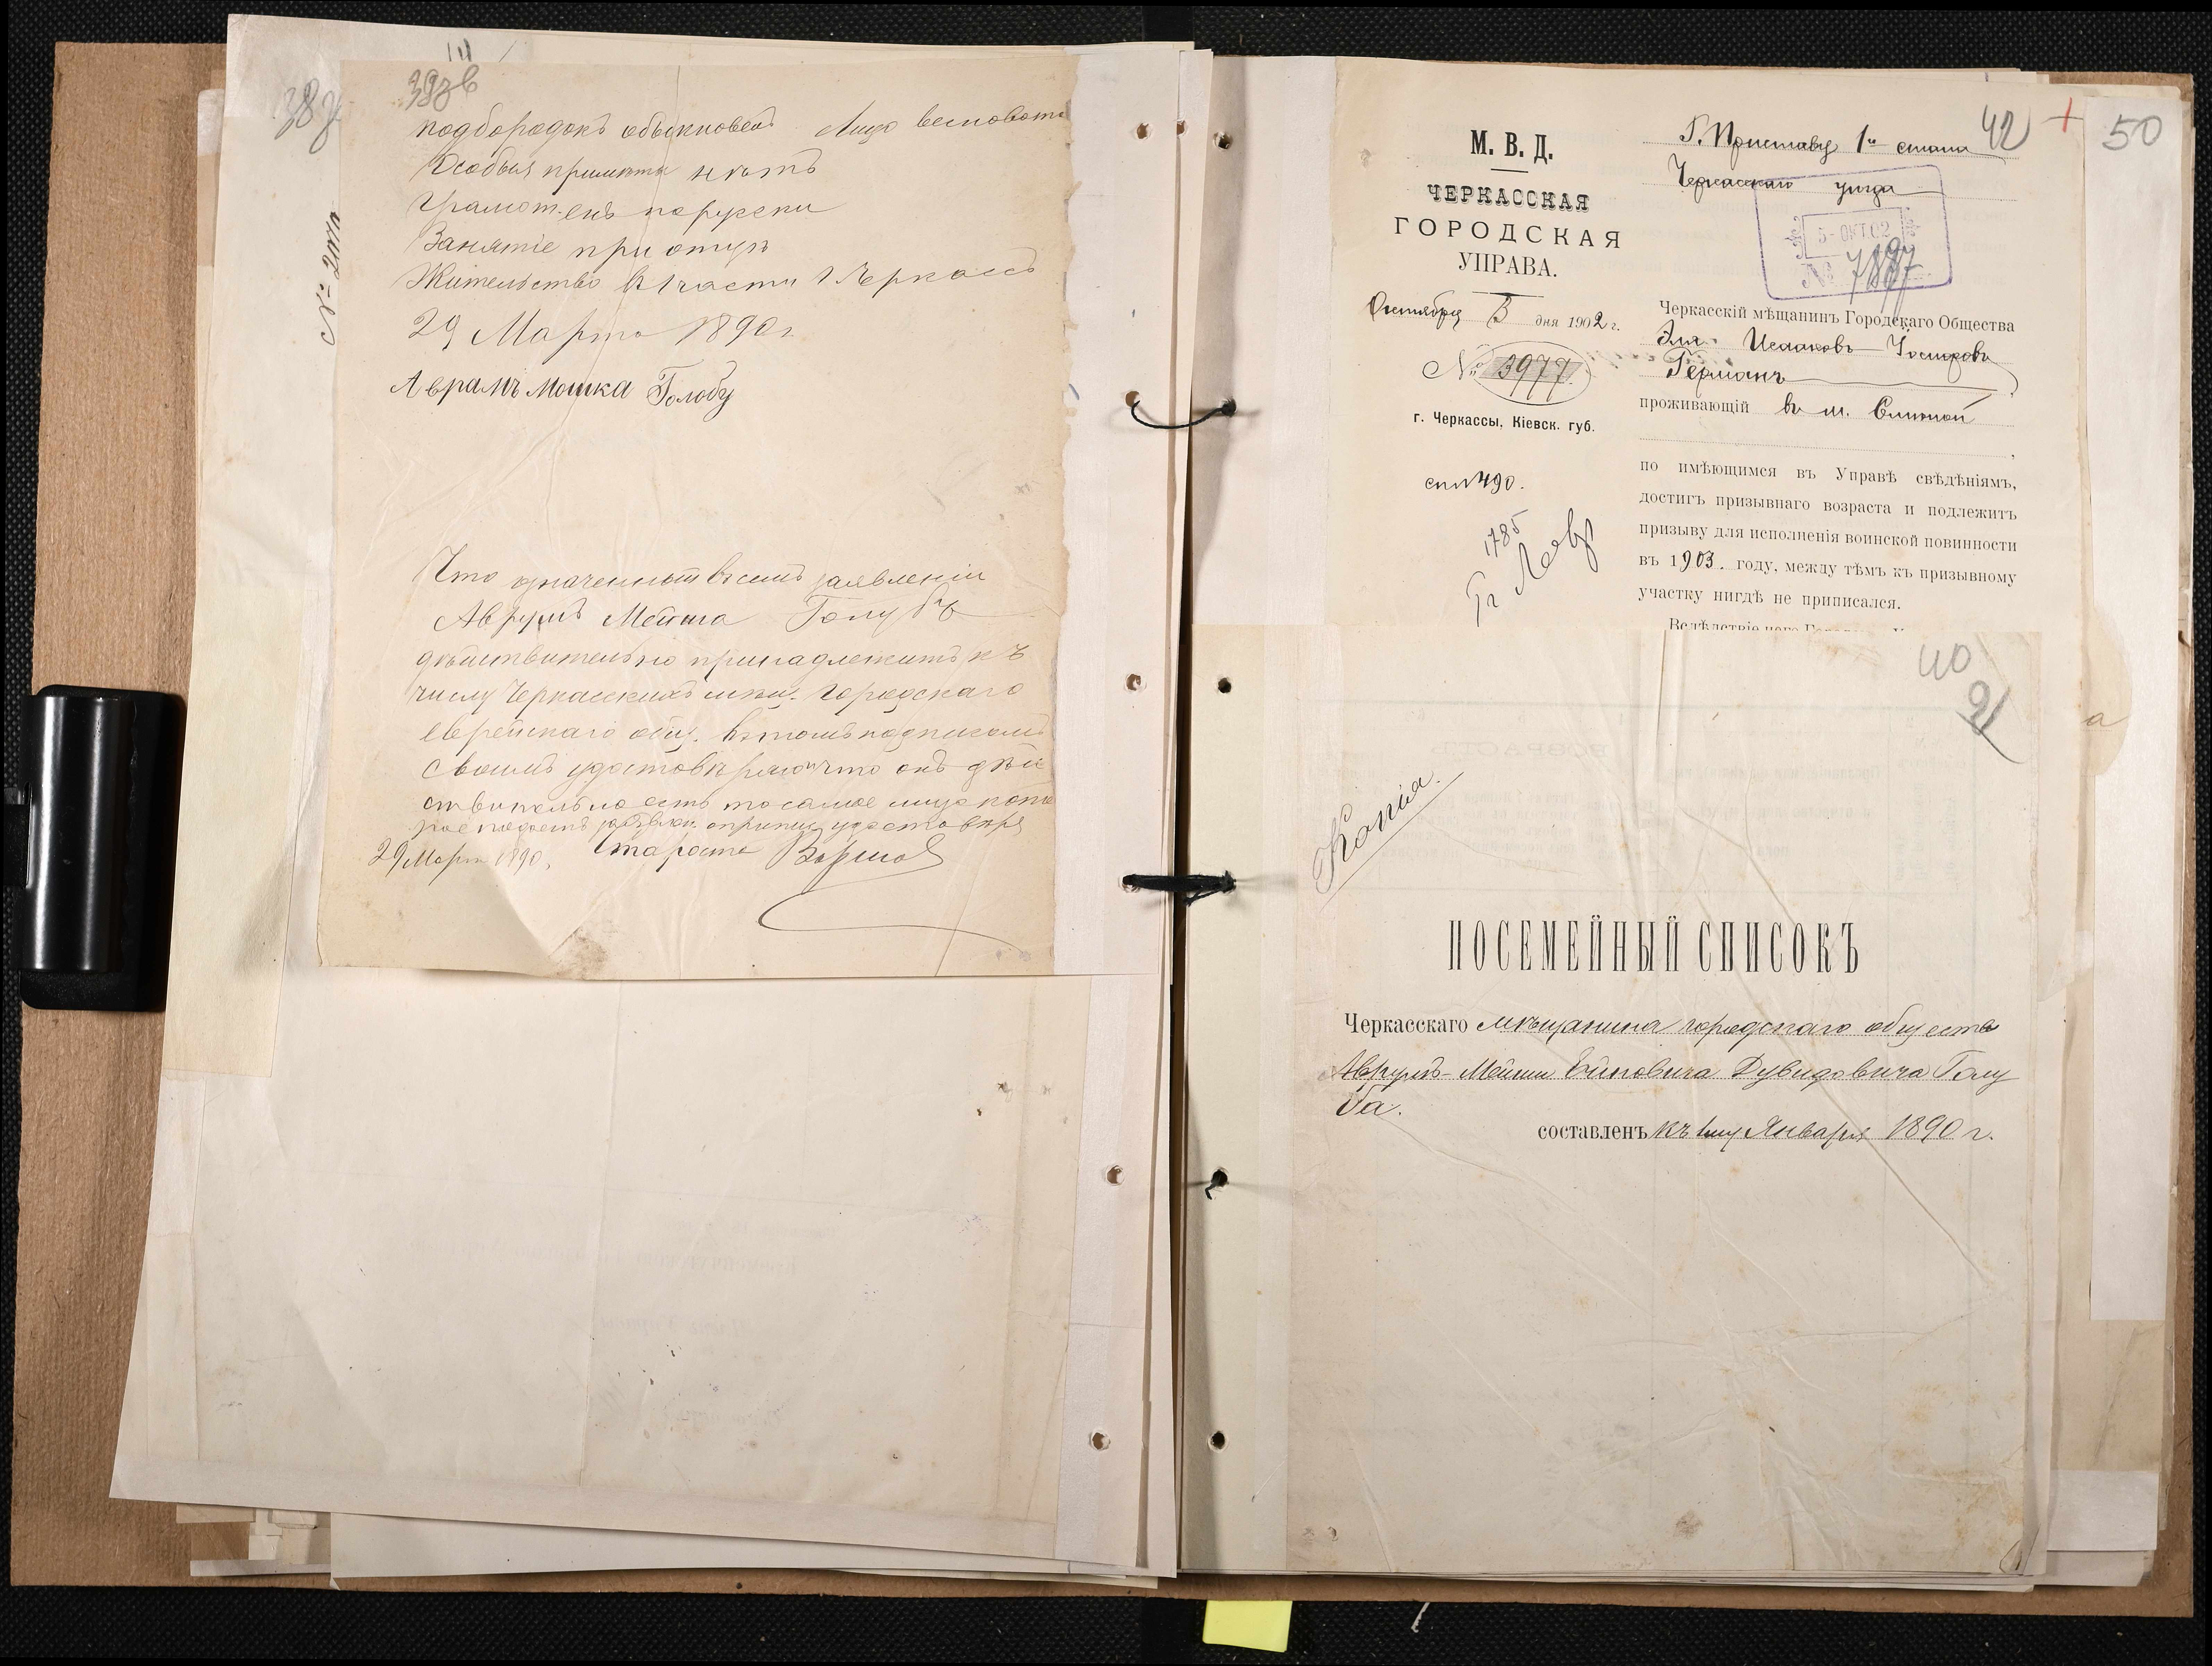 38
39зв
подбородокъ обыкновен. Лицо весноват
Особыя приметы нѣтъ
Грамотенъ порусски
Занятіе при отцѣ
Жительство в 1 части г Черкассъ
29 Марта 1890 г.
Аврамъ Мошка Голобу
Что означенный въ семъ заявленіи
Аврумъ Мейша Голубъ
дѣйствительно принадлежитъ къ
числу Черкасскихъ мѣщ. городскаго
еврейскаго общ. въ томъ подписомъ
своимъ удостовѣряю что онъ дѣй
ствительно есть тосамое лицо кото
рое подаетъ заявлен. о припис. удостовѣр
29 Март 1890. Староста
42
50
М. В. Д.
ЧЕРКАССКАЯ
ГОРОДСКАЯ
УПРАВА.
Октября 3 дня 1902 г.
№ 3977.
г. Черкассы, Кіевск. губ.
сп. № 490.
1785
Г. Приставу 1го стана
Черкасскаго уѣзда
5-ОКТ.02
№ 7897
Черкасскій мѣщанинъ Городскаго Общества
Эля Исааковъ
Германъ
проживающій въ м.
по имѣющимся въ Управѣ свѣдѣніямъ,
достигъ призывнаго возраста и подлежитъ
призыву для исполненія воинской повинности
въ 1903. году, между тѣмъ къ призывному
участку нигдѣ не приписался.
40
2
Копія.
ПОСЕМЕЙНЫЙ СПИСОКЪ
Черкасскаго мѣщанина городскаго общества
Аврумъ-Мейши Дувидовича Голу
ба.
составленъ къ 1му Января 1890 г.